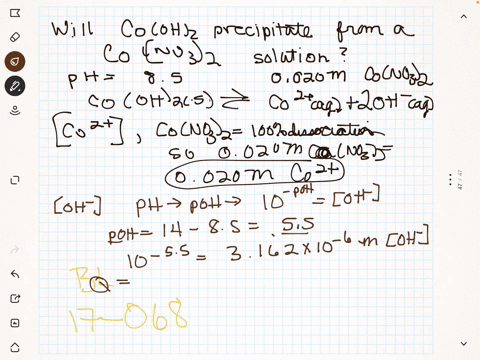 Will Co(OH)2 precipitate from a
Co(NO3)2 solution?
pH = 8.5 0.020 m Co(NO3)2
Co(OH)2(s) ⇌ Co2+(aq) + 2OH-(aq)
[Co2+], Co(NO3)2 = 100% dissociation
so 0.020m Co(NO3)2 =
0.020 m Co2+
[OH-] pH → pOH → 10^-pOH = [OH-]
pOH = 14 - 8.5 = 5.5
10^-5.5 = 3.162 × 10^-6 m [OH-]
Q =
17-068
47 / 47